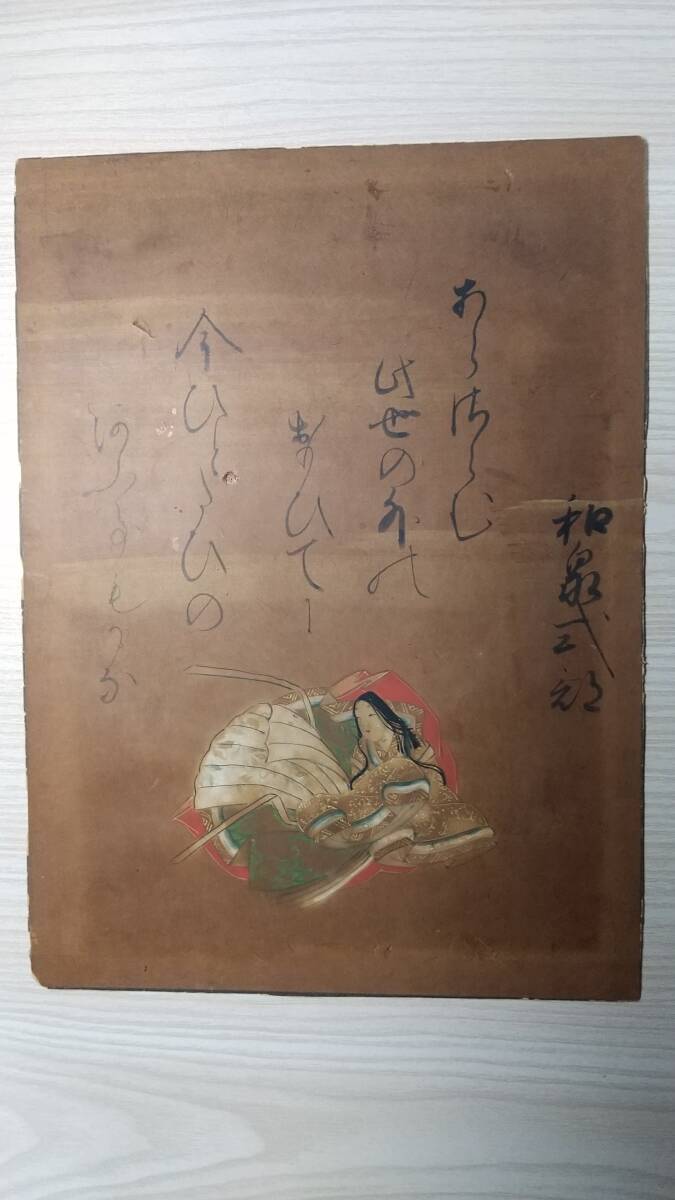 和泉式部
あらさらむ
此世の外の
おもひてに
今ひとたひの
あふ事もかな